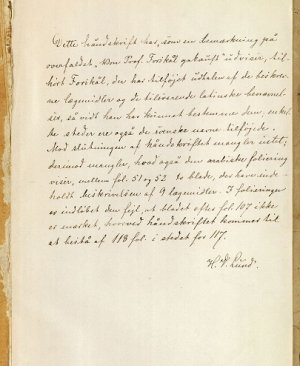 Dette håndskrift har, som en bemærkning på
overfladet, Von Prof. Forskål gekauft udviser, til-
hørt Forskål, der har tilføjet udtalen af de beskrev-
ne lægemidler og de tilsvarende latinske benævnel-
ser, så vidt han har kunnet bestemme dem, enkel-
te steder ere også de svenske navne tilføjede.
Mod slutningen af håndskriftet mangler intet;
dermod mangler, hvad også den arabiske foliering
viser, mellem fol. 51 og 52 blade, der have inde-
holdt beskrivelsen af 9 lægemidler. I folieringen
er indløbet den fejl, at bladet efter fol. 107 ikke
er mærket, hvorved håndskriftet kommer til
at bestå af 118 fol. i stedet for 117.